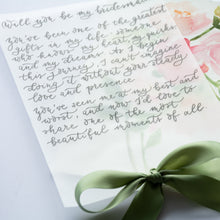 Will you be my bridesmaid
You've been one of the greatest
gifts in my life, someone
who knows my heart, my quirks,
and my dreams. As I begin
this journey, I can't imagine
doing it without your steady
love and presence.
You've seen me at my best and
worst, and now I'd love to
share one of the most
beautiful moments of all.